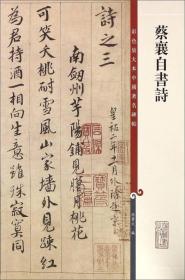 彩色放大本中國著名碑帖
蔡襄自書詩
孫寶文 編
詩之三
皇祐二年十一月外除赴京
南劍州芋陽鋪見臘月桃花
可笑夭桃耐雪風山家墻外見踈紅
為君持酒一相向生意雖殊寂寞同